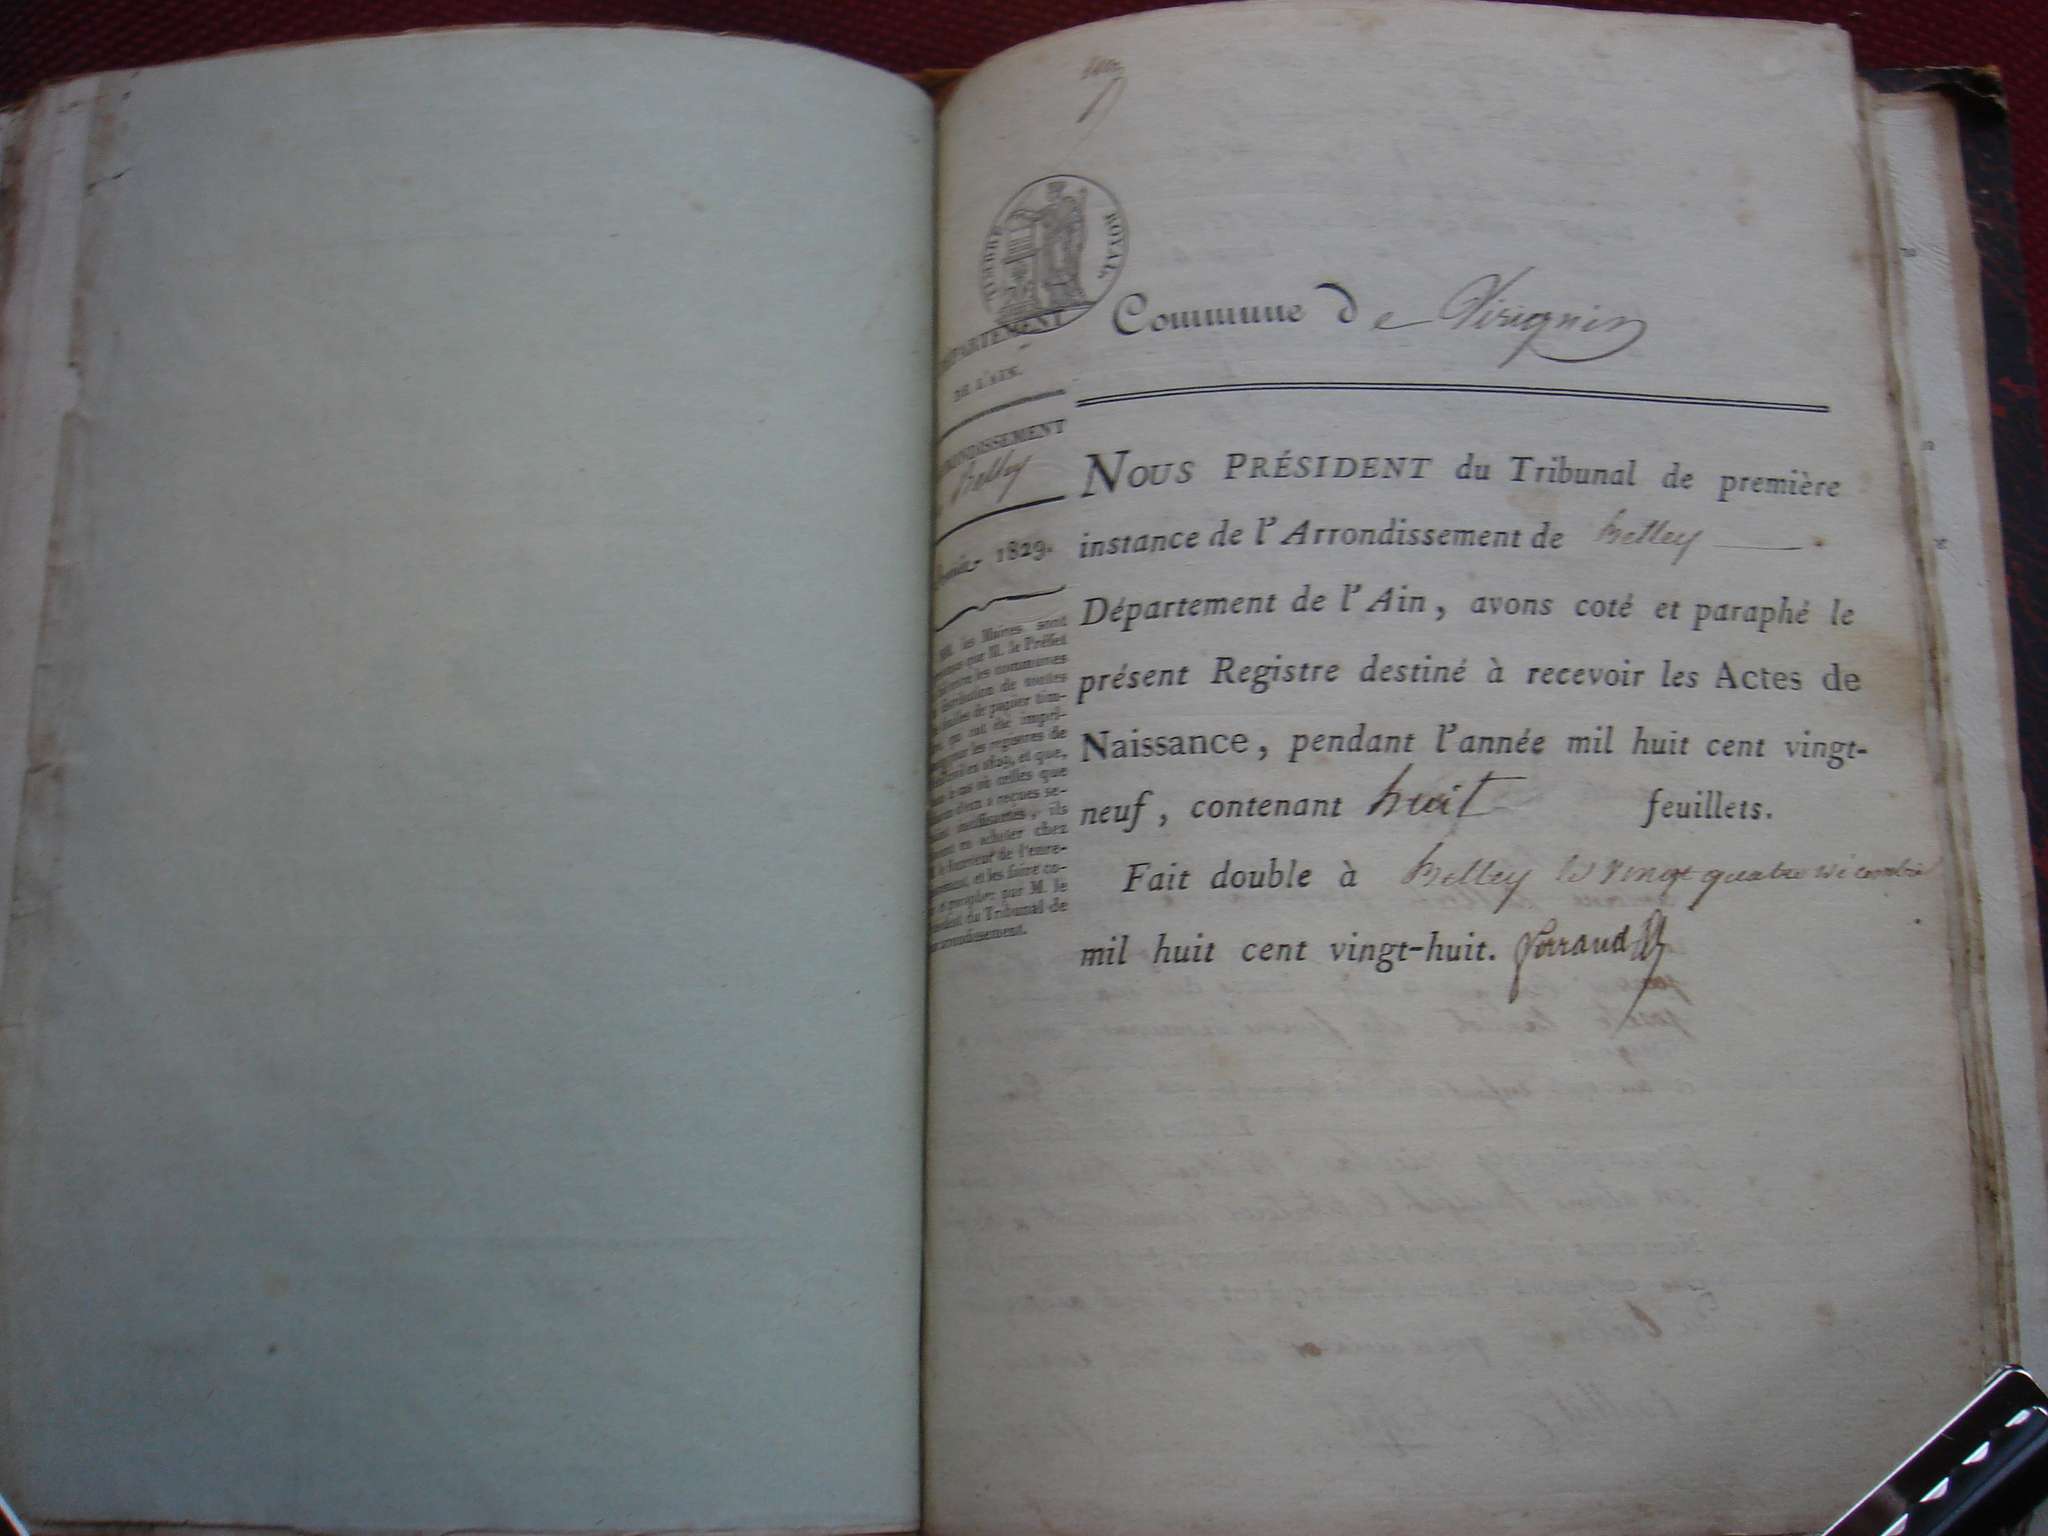 TIMBRE ROYAL
Commune de Virignin
DÉPARTEMENT
DE L'AIN.
ARRONDISSEMENT
Belley
1829.
NOUS PRÉSIDENT du Tribunal de première
instance de l'Arrondissement de Belley
Département de l'Ain, avons coté et paraphé le
présent Registre destiné à recevoir les Actes de
Naissance, pendant l'année mil huit cent vingt-
neuf, contenant huit feuillets.
Fait double à Belley le vingt quatre décembre
mil huit cent vingt-huit.
MM. les Maires sont
que M. le Préfet
entre les communes
distribution de toutes
feuilles de papier tim-
qui ont été impri-
pour les registres de
en 1829, et que,
cas où celles que
reçues se-
insuffisantes, ils
en acheter chez
le Receveur de l'enre-
et les faire co-
et parapher par M. le
du Tribunal de
arrondissement.